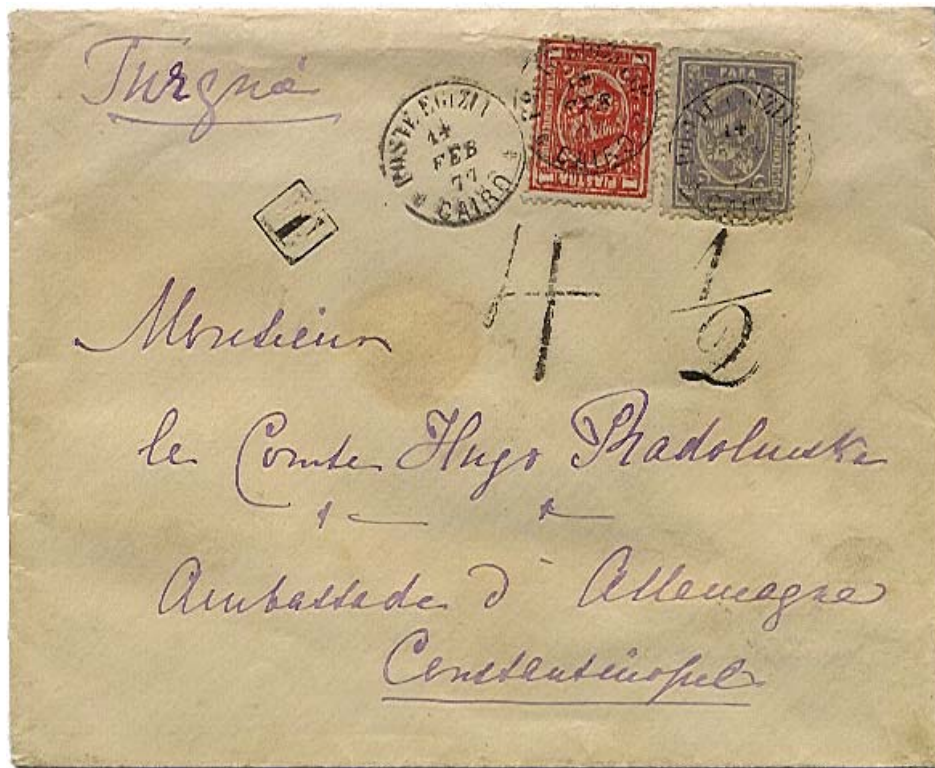 Turquie
POSTE EGIZIANE
14
FEB
77
CAIRO
T
PARA
14
4 1/2
Monsieur
le Comte Hugo Rhadolinska
Ambassade d'Allemagne
Constantinopel